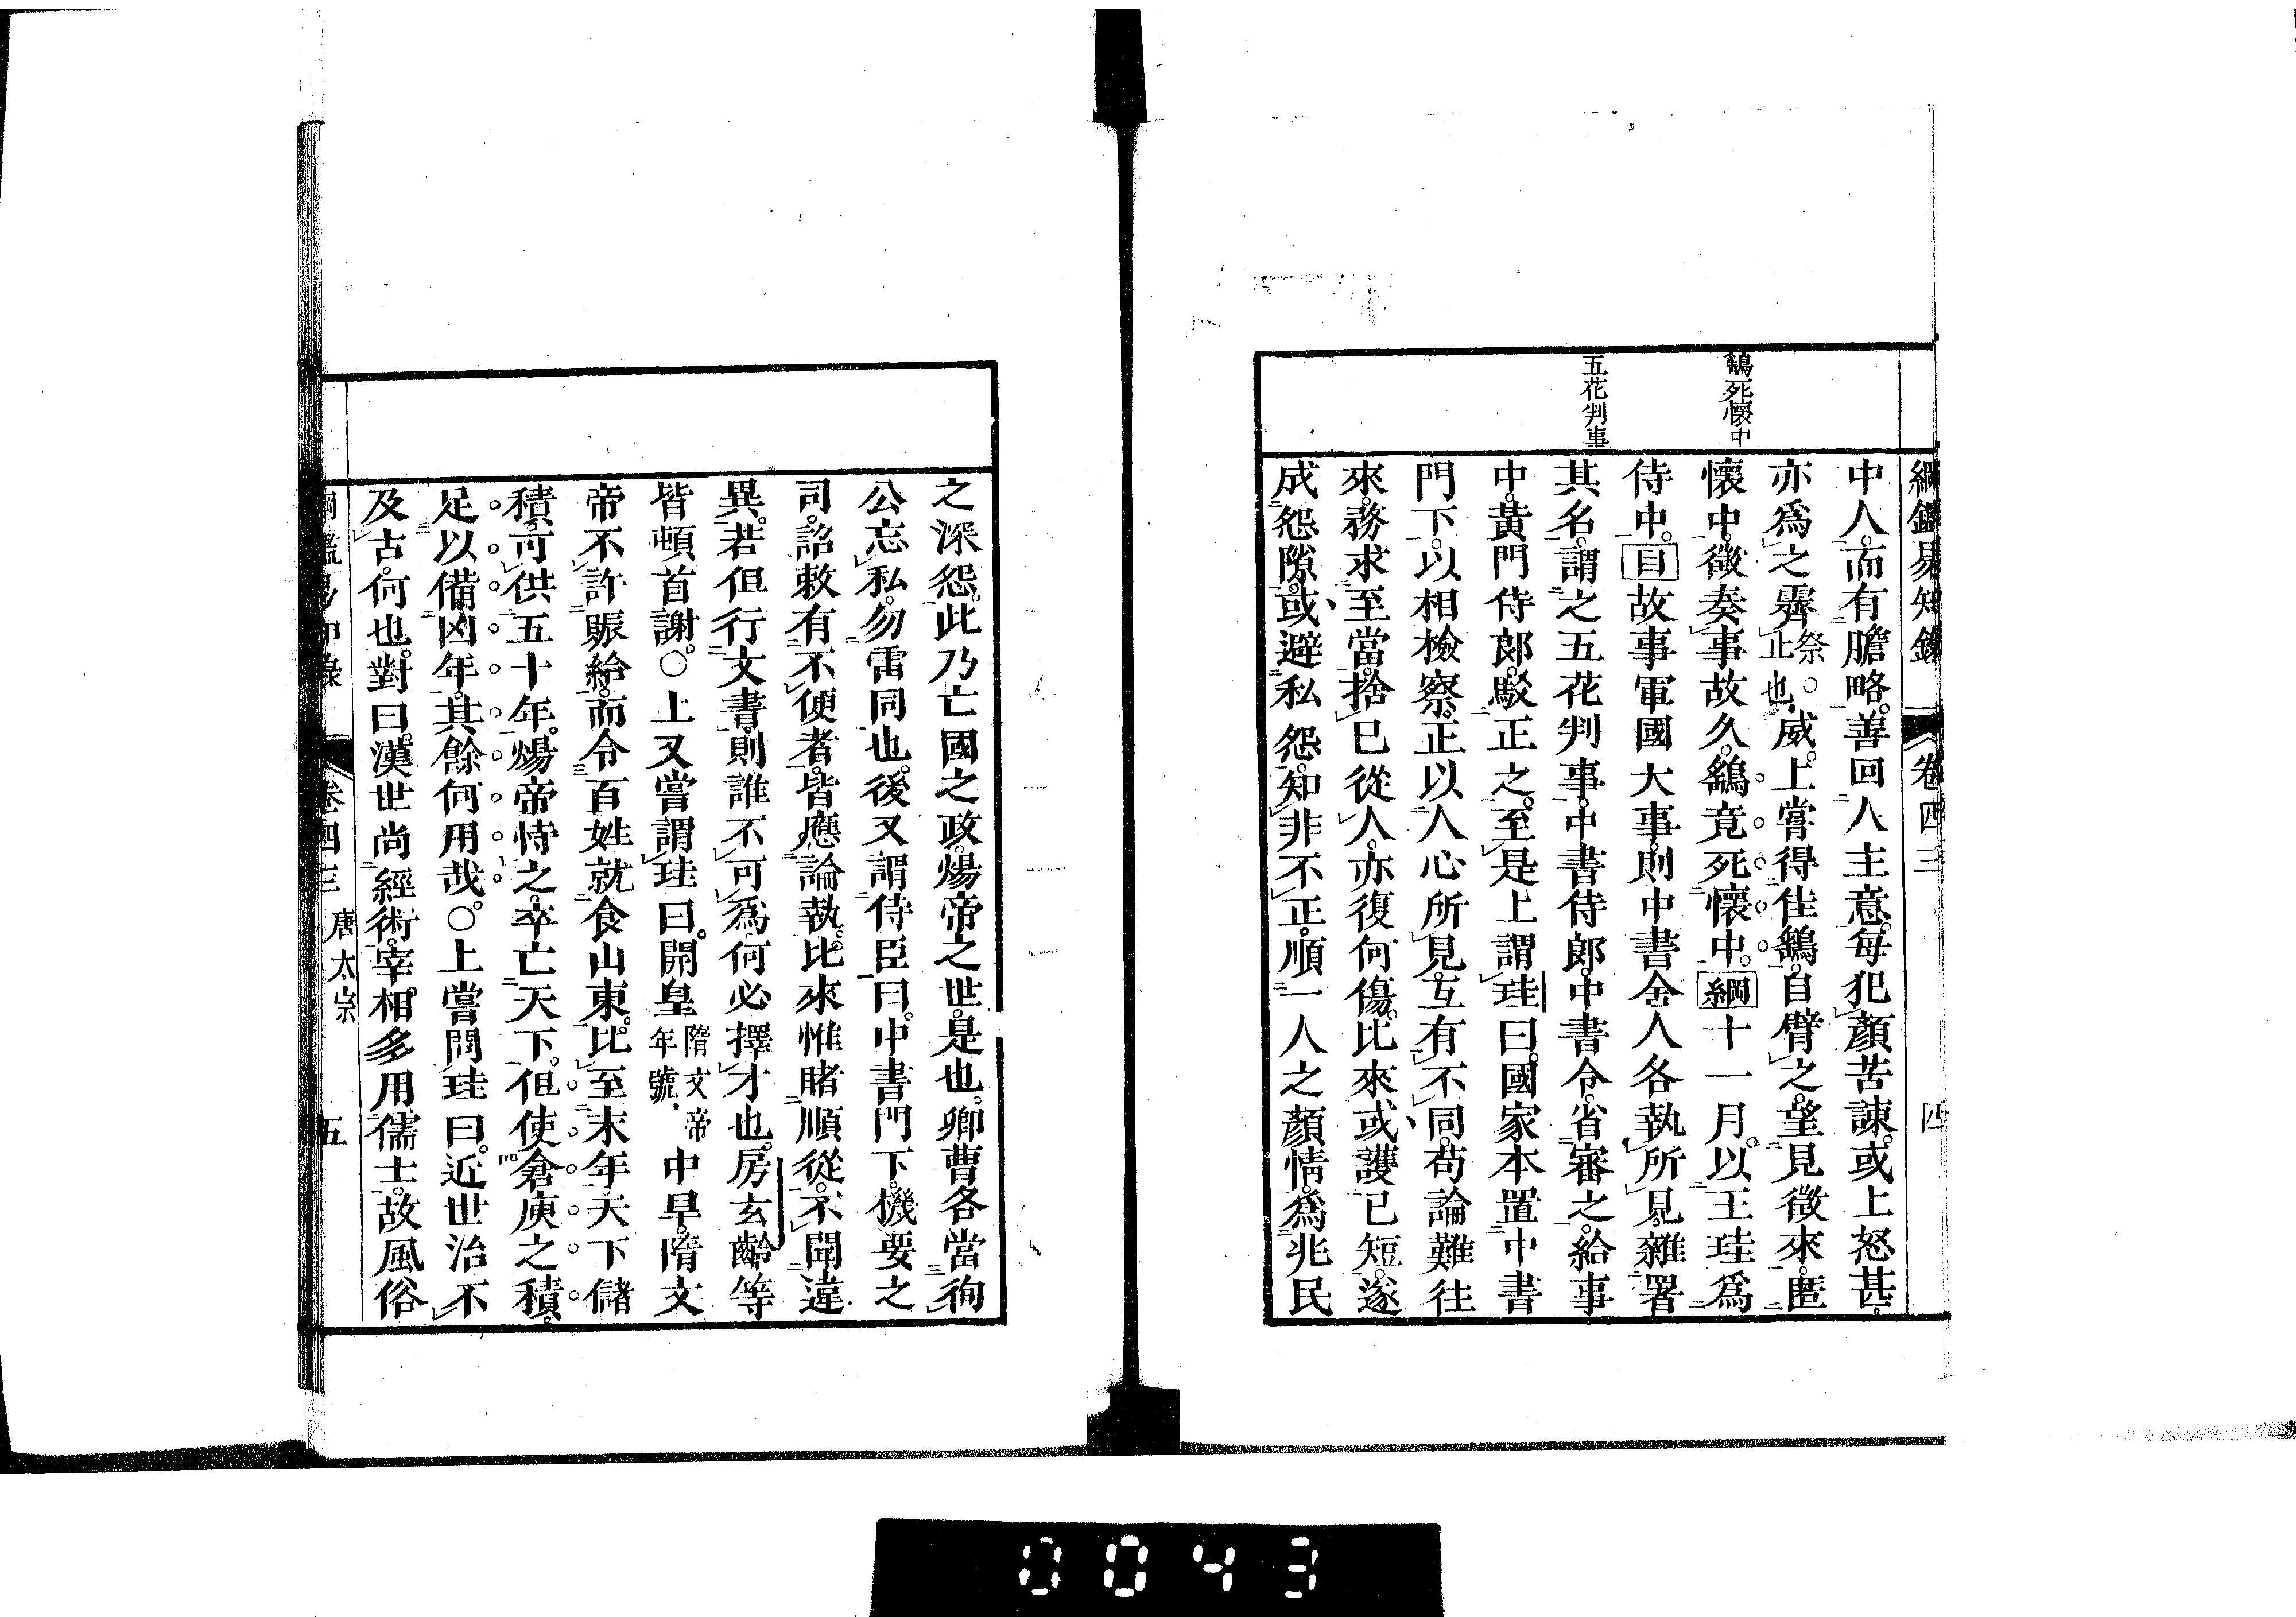 綱鑑易知錄 卷四三 四
鷂死懷中
五花判事
中人。而有膽略。善回人主意。每犯顏苦諫。或上怒甚。
亦爲之霽祭。○止也。威。上嘗得佳鷂。自臂之。望見徵來。匿
懷中。徵奏事故久。鷂竟死懷中。綱十一月。以王珪爲
侍中。目故事軍國大事。則中書舍人各執所見。雜署
其名。謂之五花判事。中書侍郎。中書令。省審之。給事
中。黃門侍郎。駁正之。至是上謂珪曰。國家本置中書
門下。以相檢察。正以人心所見。互有不同。苟論難往
來。務求至當。捨已從人。亦復何傷。比來或護已短。遂
成怨隙。或避私怨。知非不正。順一人之顏情。爲兆民
之深怨。此乃亡國之政。煬帝之世。是也。卿曹各當徇
公忘私。勿雷同也。後又謂侍臣曰。中書門下。機要之
司。詔敕有不便者。皆應論執。比來惟睹順從。不聞違
異。若但行文書。則誰不可爲。何必擇才也。房玄齡等
皆頓首謝。○上又嘗謂珪曰。開皇隋文帝年號。中旱。隋文
帝不許賑給。而令百姓就食山東。比至末年。天下儲
積。可供五十年。煬帝恃之。卒亡天下。但使倉庾之積。
足以備凶年。其餘何用哉。○上嘗問珪曰。近世治不
及古。何也。對曰。漢世尚經術。宰相多用儒士。故風俗
卷四三 唐太宗 五
0043